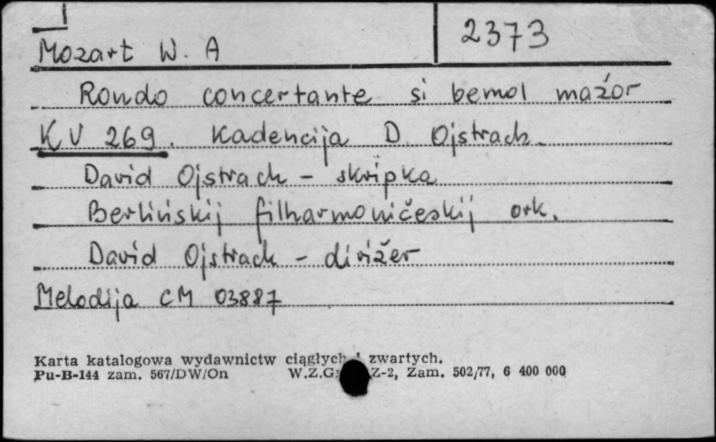 Mozart W. A 2373
Rondo concertante si bemol mažor
KV 269. Kadencija D. Ojstrach
David Ojstrach - skripka
Berlinskij filharmoničeskij ork.
David Ojstrach - dirižer
Melodija CM 03887
Karta katalogowa wydawnictw ciągłych i zwartych.
Pu-B-144 zam. 567/DW/On W.Z.G. Z-2, Zam. 502/77, 6 400 000